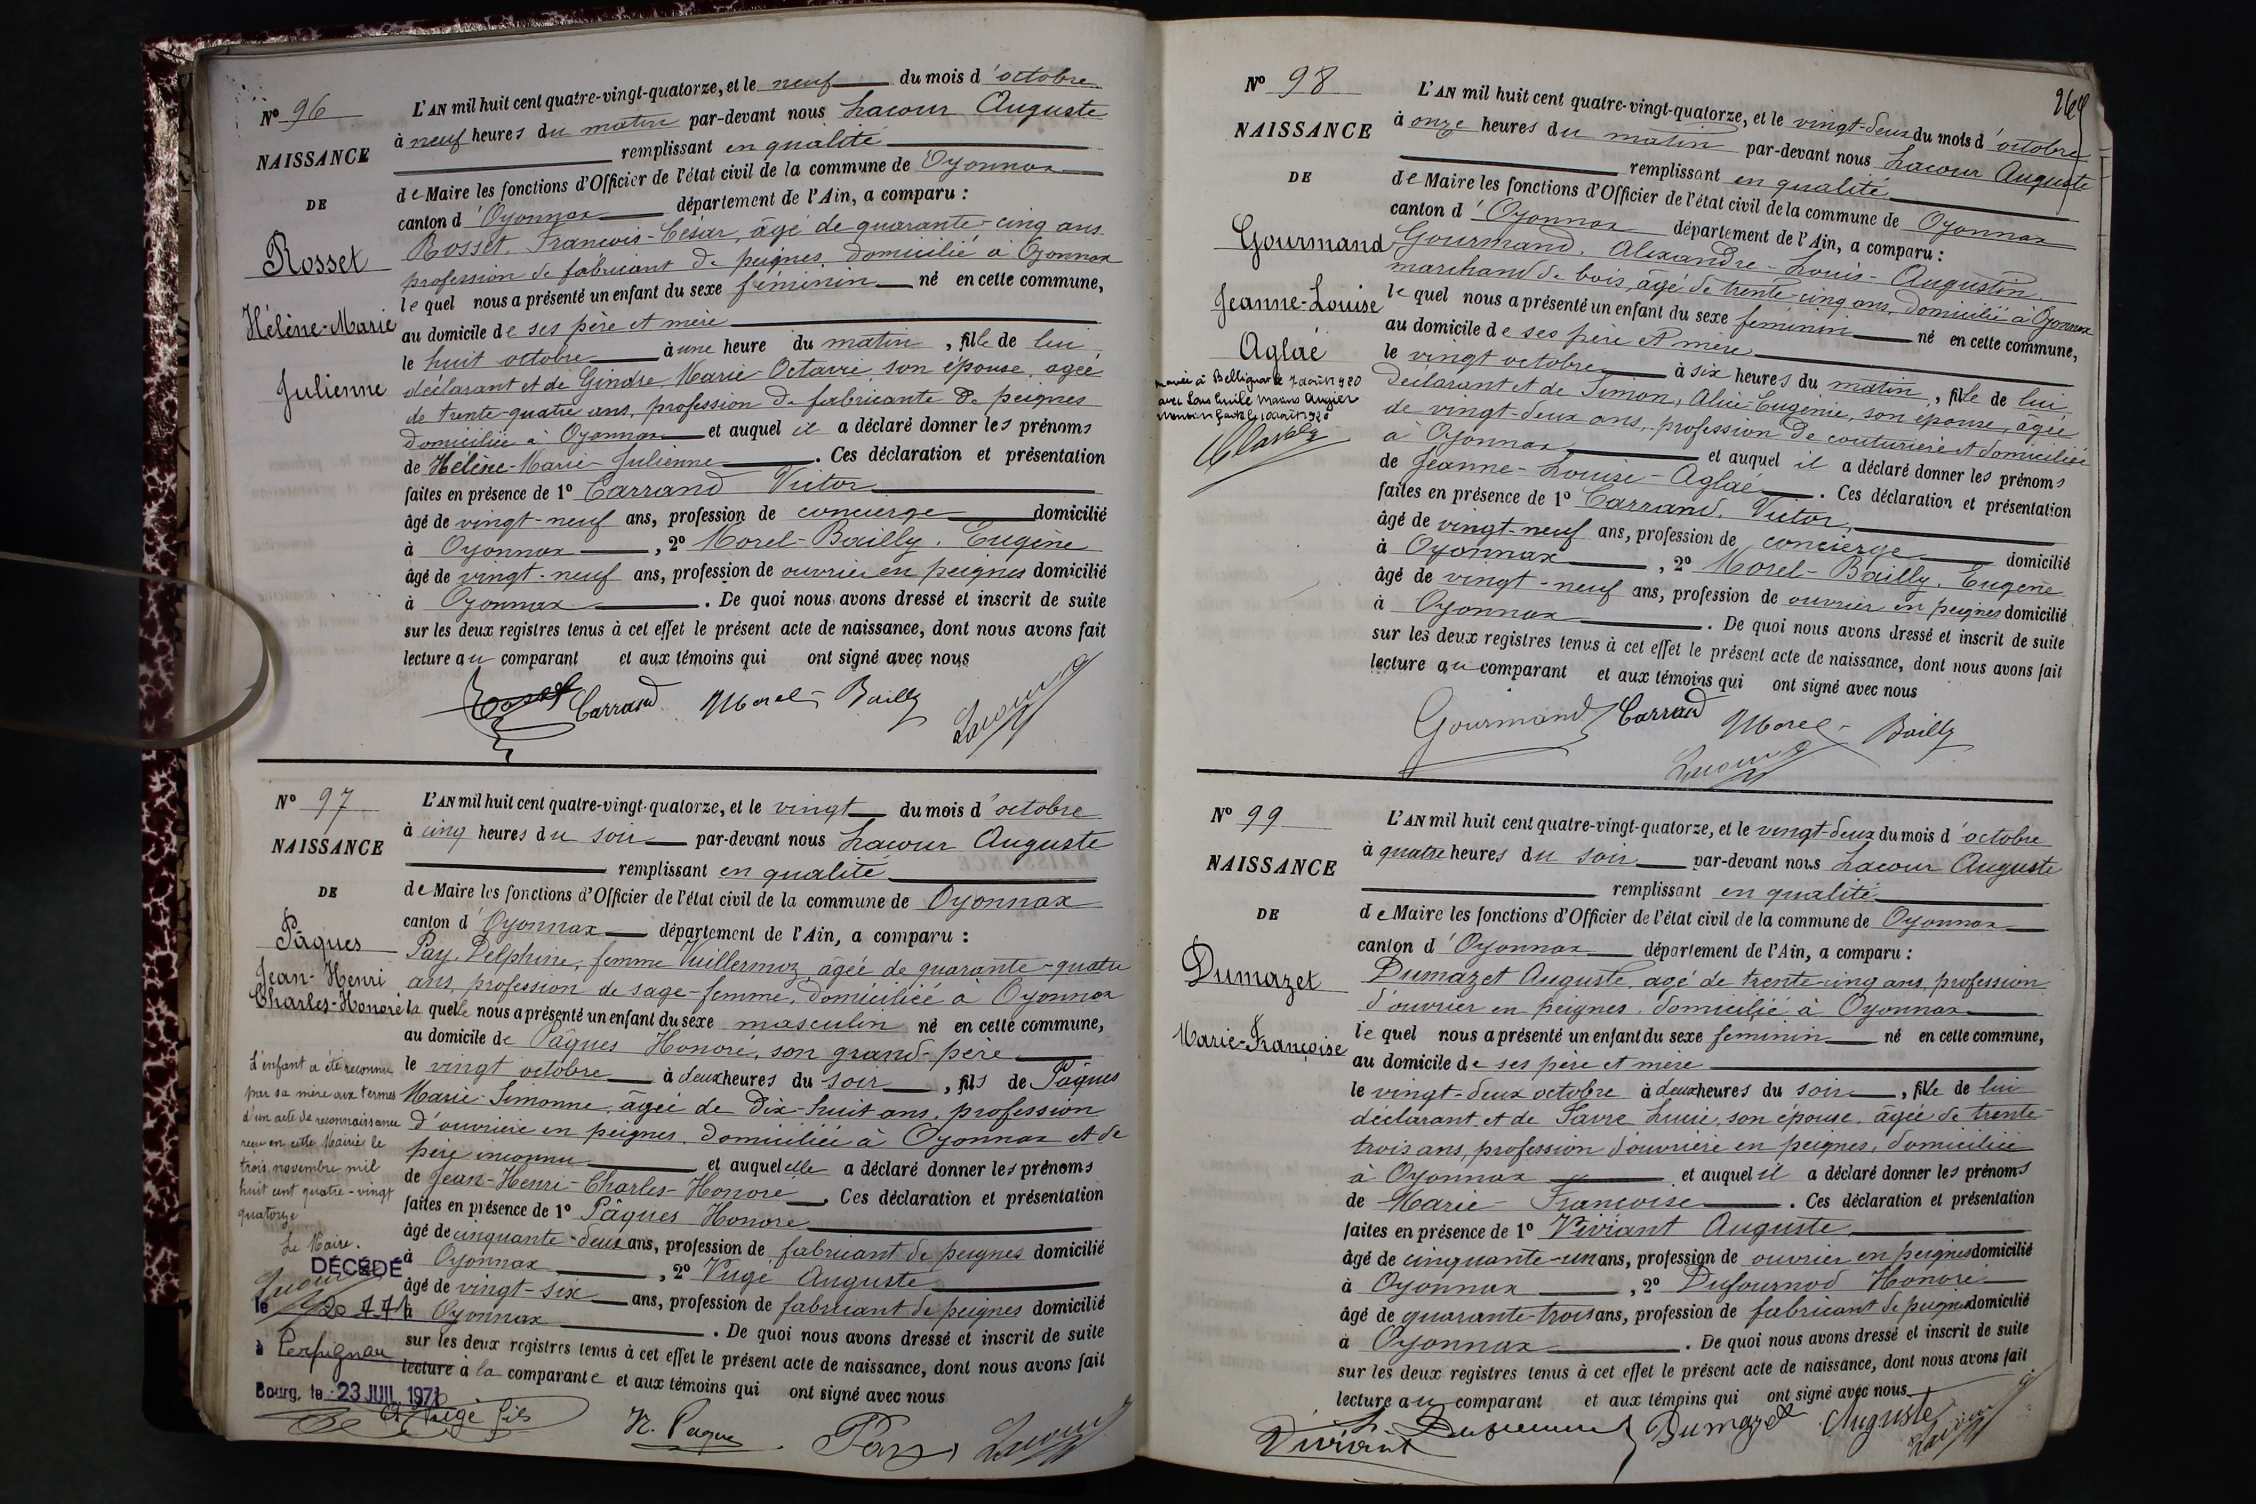 N° 96
NAISSANCE
DE
Rosset
Hélène-Marie
Julienne
L'AN mil huit cent quatre-vingt-quatorze, et le neuf du mois d'octobre
à neuf heures du matin par-devant nous Lacour Auguste
remplissant en qualité
de Maire les fonctions d'Officier de l'état civil de la commune de Oyonnax
canton d'Oyonnax département de l'Ain, a comparu :
Rosset, François-César, âgé de quarante-cinq ans
profession de fabricant de peignes, domicilié à Oyonnax
lequel nous a présenté un enfant du sexe féminin né en cette commune,
au domicile de ses père et mère
le huit octobre à une heure du matin, fille de lui
déclarant et de Gindre, Marie-Octavie, son épouse, agée
de trente-quatre ans, profession de fabricante de peignes
domiciliée à Oyonnax et auquel il a déclaré donner les prénoms
de Hélène-Marie-Julienne. Ces déclaration et présentation
faites en présence de 1° Carrand Victor
âgé de vingt-neuf ans, profession de concierge domicilié
à Oyonnax, 2° Morel-Bailly, Eugène
âgé de vingt-neuf ans, profession de ouvrier en peignes domicilié
à Oyonnax. De quoi nous avons dressé et inscrit de suite
sur les deux registres tenus à cet effet le présent acte de naissance, dont nous avons fait
lecture au comparant et aux témoins qui ont signé avec nous
Rosset Carrand Morel-Bailly Lacour
N° 97
NAISSANCE
DE
Pâques
Jean-Henri
Charles-Honoré
L'enfant a été reconnu
par sa mère aux termes
d'un acte de reconnaissance
reçu en cette Mairie le
trois novembre mil
huit cent quatre-vingt
quatorze
Le Maire.
Lacour
DÉCÉDÉ
le
à Perpignan
Bourg, le 23 JUIL 1971
L'AN mil huit cent quatre-vingt-quatorze, et le vingt du mois d'octobre
à cinq heures du soir par-devant nous Lacour Auguste
remplissant en qualité
de Maire les fonctions d'Officier de l'état civil de la commune de Oyonnax
canton d'Oyonnax département de l'Ain, a comparu :
Pay, Delphine, femme Vuillermoz, âgée de quarante-quatre
ans, profession de sage-femme, domiciliée à Oyonnax
laquelle nous a présenté un enfant du sexe masculin né en cette commune,
au domicile de Pâques Honoré, son grand-père
le vingt octobre à deux heures du soir, fils de Pâques
Marie-Simonne, âgée de dix-huit ans, profession
d'ouvrière en peignes, domiciliée à Oyonnax et de
père inconnu et auquel elle a déclaré donner les prénoms
de Jean-Henri-Charles-Honoré. Ces déclaration et présentation
faites en présence de 1° Pâques Honoré
âgé de cinquante-deux ans, profession de fabricant de peignes domicilié
à Oyonnax, 2° Vugé Auguste
âgé de vingt-six ans, profession de fabricant de peignes domicilié
à Oyonnax. De quoi nous avons dressé et inscrit de suite
sur les deux registres tenus à cet effet le présent acte de naissance, dont nous avons fait
lecture à la comparante et aux témoins qui ont signé avec nous
A Vugé fils H. Paque Pay Lacour
N° 98
NAISSANCE
DE
Gourmand
Jeanne-Louise
Aglaé
mariée à Bellignat le 7 août 1920
avec Louis Emile Marius Augier
L'AN mil huit cent quatre-vingt-quatorze, et le vingt-deux du mois d'octobre
à onze heures du matin par-devant nous Lacour Auguste
remplissant en qualité
de Maire les fonctions d'Officier de l'état civil de la commune de Oyonnax
canton d'Oyonnax département de l'Ain, a comparu :
Gourmand, Alexandre-Louis-Augustin
marchand de bois, âgé de trente-cinq ans, domicilié à Oyonnax
lequel nous a présenté un enfant du sexe féminin né en cette commune,
au domicile de ses père et mère
le vingt octobre à six heures du matin, fille de lui
déclarant et de Simon, Alice-Eugénie, son épouse, agée
de vingt-deux ans, profession de couturière et domiciliée
à Oyonnax et auquel il a déclaré donner les prénoms
de Jeanne-Louise-Aglaé. Ces déclaration et présentation
faites en présence de 1° Carrand, Victor,
âgé de vingt-neuf ans, profession de concierge domicilié
à Oyonnax, 2° Morel-Bailly, Eugène
âgé de vingt-neuf ans, profession de ouvrier en peignes domicilié
à Oyonnax. De quoi nous avons dressé et inscrit de suite
sur les deux registres tenus à cet effet le présent acte de naissance, dont nous avons fait
lecture au comparant et aux témoins qui ont signé avec nous
Gourmand Carrand Morel-Bailly
Lacour
N° 99
NAISSANCE
DE
Dumazet
Marie-Françoise
L'AN mil huit cent quatre-vingt-quatorze, et le vingt-deux du mois d'octobre
à quatre heures du soir par-devant nous Lacour Auguste
remplissant en qualité
de Maire les fonctions d'Officier de l'état civil de la commune de Oyonnax
canton d'Oyonnax département de l'Ain, a comparu :
Dumazet Auguste, agé de trente-cinq ans, profession
d'ouvrier en peignes, domicilié à Oyonnax
lequel nous a présenté un enfant du sexe féminin né en cette commune,
au domicile de ses père et mère
le vingt-deux octobre à deux heures du soir, fille de lui
déclarant et de Savre Lucie, son épouse, âgée de trente-
trois ans, profession d'ouvrière en peignes, domiciliée
à Oyonnax et auquel il a déclaré donner les prénoms
de Marie-Françoise. Ces déclaration et présentation
faites en présence de 1° Viviant Auguste
âgé de cinquante-un ans, profession de ouvrier en peignes domicilié
à Oyonnax, 2° Dufournod Honoré
âgé de quarante-trois ans, profession de fabricant de peignes domicilié
à Oyonnax. De quoi nous avons dressé et inscrit de suite
sur les deux registres tenus à cet effet le présent acte de naissance, dont nous avons fait
lecture au comparant et aux témoins qui ont signé avec nous
Viviant Dumazet Auguste Lacour